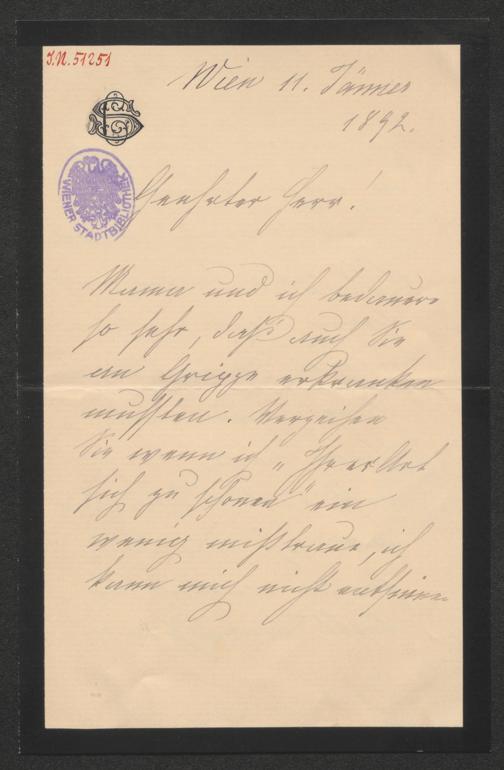 I.N. 51251
Wien 11. Jänner
1892.
WIENER STADTBIBLIOTHEK
Geehrter Herr!
Mama und ich bedauern
so sehr, daß auch Sie
an Grippe erkranken
mußten. Verzeihen
Sie wenn ich „Ihrer Art
sich zu schonen" ein
wenig mißtraue, ich
kann mich nicht entsinnen